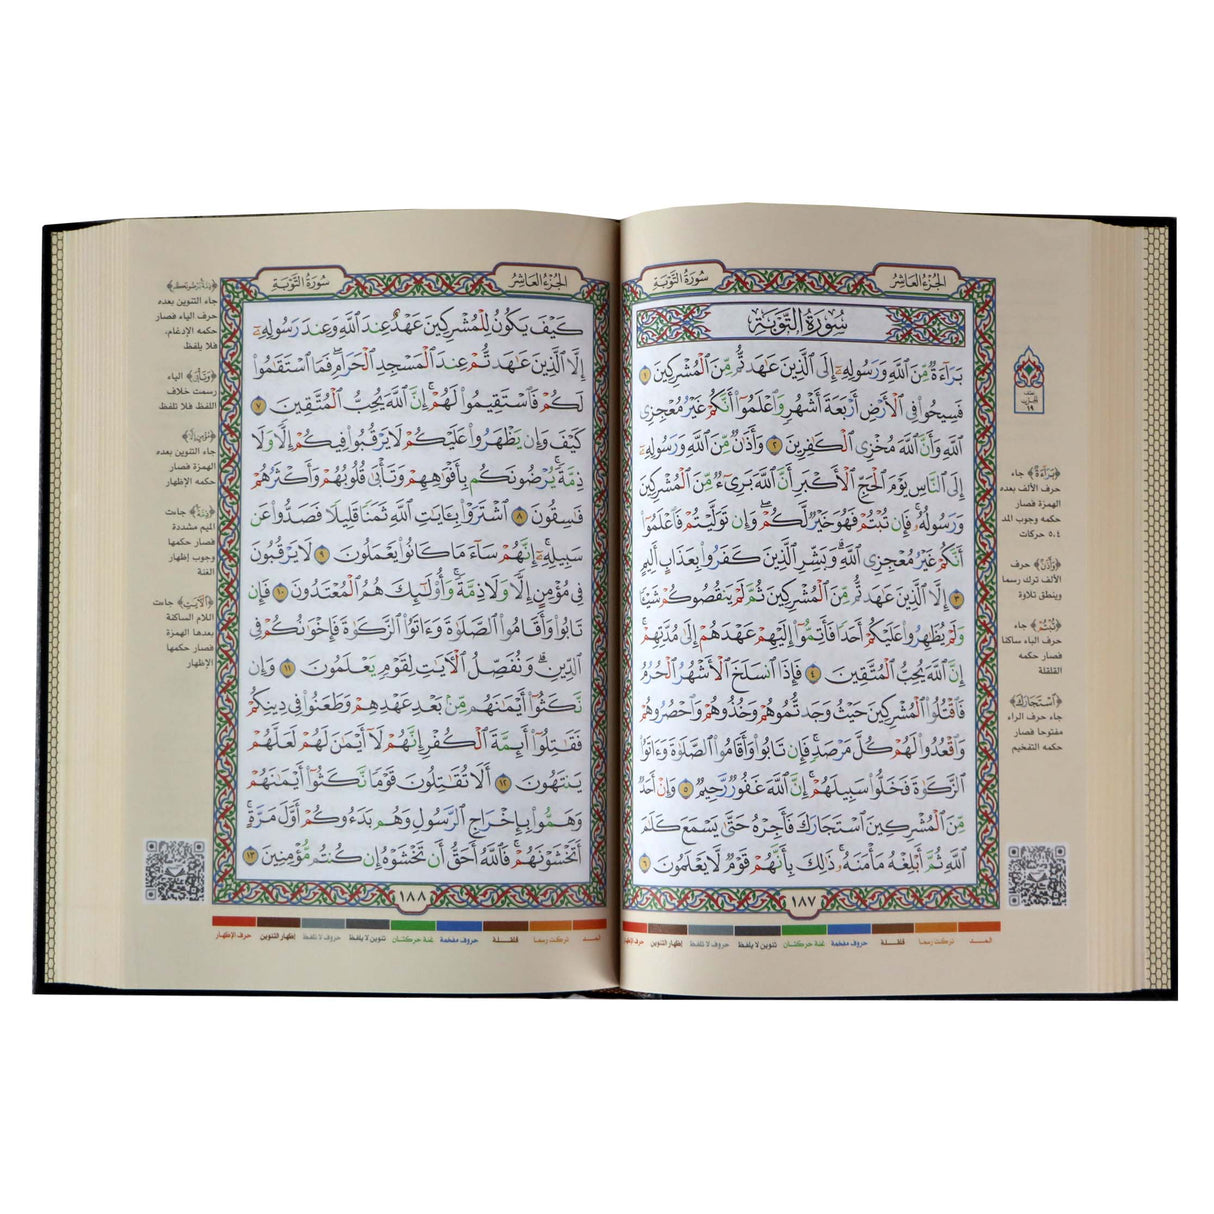 الجزء العاشر
سورة التوبة
سُورَةُ التَّوْبَةِ
بَرَآءَةٌ مِّنَ ٱللَّهِ وَرَسُولِهِۦٓ إِلَى ٱلَّذِينَ عَٰهَدتُّم مِّنَ ٱلْمُشْرِكِينَ ١
فَسِيحُوا۟ فِى ٱلْأَرْضِ أَرْبَعَةَ أَشْهُرٍ وَٱعْلَمُوٓا۟ أَنَّكُمْ غَيْرُ مُعْجِزِى
ٱللَّهِ وَأَنَّ ٱللَّهَ مُخْزِى ٱلْكَٰفِرِينَ ٢ وَأَذَٰنٌ مِّنَ ٱللَّهِ وَرَسُولِهِۦٓ
إِلَى ٱلنَّاسِ يَوْمَ ٱلْحَجِّ ٱلْأَكْبَرِ أَنَّ ٱللَّهَ بَرِىٓءٌ مِّنَ ٱلْمُشْرِكِينَ
وَرَسُولُهُۥ فَإِن تُبْتُمْ فَهُوَ خَيْرٌ لَّكُمْ وَإِن تَوَلَّيْتُمْ فَٱعْلَمُوٓا۟
أَنَّكُمْ غَيْرُ مُعْجِزِى ٱللَّهِ وَبَشِّرِ ٱلَّذِينَ كَفَرُوا۟ بِعَذَابٍ أَلِيمٍ
٣ إِلَّا ٱلَّذِينَ عَٰهَدتُّم مِّنَ ٱلْمُشْرِكِينَ ثُمَّ لَمْ يَنقُصُوكُمْ شَيْـًٔا
وَلَمْ يُظَٰهِرُوا۟ عَلَيْكُمْ أَحَدًا فَأَتِمُّوٓا۟ إِلَيْهِمْ عَهْدَهُمْ إِلَىٰ مُدَّتِهِمْ
إِنَّ ٱللَّهَ يُحِبُّ ٱلْمُتَّقِينَ ٤ فَإِذَا ٱنسَلَخَ ٱلْأَشْهُرُ ٱلْحُرُمُ
فَٱقْتُلُوا۟ ٱلْمُشْرِكِينَ حَيْثُ وَجَدتُّمُوهُمْ وَخُذُوهُمْ وَٱحْصُرُوهُمْ
وَٱقْعُدُوا۟ لَهُمْ كُلَّ مَرْصَدٍ فَإِن تَابُوا۟ وَأَقَامُوا۟ ٱلصَّلَوٰةَ وَءَاتَوُا۟
ٱلزَّكَوٰةَ فَخَلُّوا۟ سَبِيلَهُمْ إِنَّ ٱللَّهَ غَفُورٌ رَّحِيمٌ ٥ وَإِنْ أَحَدٌ
مِّنَ ٱلْمُشْرِكِينَ ٱسْتَجَارَكَ فَأَجِرْهُ حَتَّىٰ يَسْمَعَ كَلَٰمَ
ٱللَّهِ ثُمَّ أَبْلِغْهُ مَأْمَنَهُۥ ذَٰلِكَ بِأَنَّهُمْ قَوْمٌ لَّا يَعْلَمُونَ ٦
١٨٧
﴿بَرَآءَةٌ﴾ جاء
حرف الألف بعده
الهمزة فصار
حكمه وجوب المد
٥،٤ حركات
﴿وَأَذَٰنٌ﴾ حرف
الألف ترك رسما
وينطق تلاوة
﴿تُبْتُمْ﴾ جاء
حرف الباء ساكنا
فصار حكمه
القلقلة
﴿ٱسْتَجَارَكَ﴾
جاء حرف الراء
مفتوحا فصار
حكمه التفخيم
المــد
تركت رسما
قلقلة
حروف مفخمة
غنة حركتان
تنوين لا يلفظ
حروف لا تلفظ
إظهار التنوين
حرف الإظهار
الجزء العاشر
سورة التوبة
كَيْفَ يَكُونُ لِلْمُشْرِكِينَ عَهْدٌ عِندَ ٱللَّهِ وَعِندَ رَسُولِهِۦٓ
إِلَّا ٱلَّذِينَ عَٰهَدتُّمْ عِندَ ٱلْمَسْجِدِ ٱلْحَرَامِ فَمَا ٱسْتَقَٰمُوا۟
لَكُمْ فَٱسْتَقِيمُوا۟ لَهُمْ إِنَّ ٱللَّهَ يُحِبُّ ٱلْمُتَّقِينَ ٧
كَيْفَ وَإِن يَظْهَرُوا۟ عَلَيْكُمْ لَا يَرْقُبُوا۟ فِيكُمْ إِلًّا وَلَا
ذِمَّةً يُرْضُونَكُم بِأَفْوَٰهِهِمْ وَتَأْبَىٰ قُلُوبُهُمْ وَأَكْثَرُهُمْ
فَٰسِقُونَ ٨ ٱشْتَرَوْا۟ بِـَٔايَٰتِ ٱللَّهِ ثَمَنًا قَلِيلًا فَصَدُّوا۟ عَن
سَبِيلِهِۦٓ إِنَّهُمْ سَآءَ مَا كَانُوا۟ يَعْمَلُونَ ٩ لَا يَرْقُبُونَ
فِى مُؤْمِنٍ إِلًّا وَلَا ذِمَّةً وَأُو۟لَٰٓئِكَ هُمُ ٱلْمُعْتَدُونَ ١٠ فَإِن
تَابُوا۟ وَأَقَامُوا۟ ٱلصَّلَوٰةَ وَءَاتَوُا۟ ٱلزَّكَوٰةَ فَإِخْوَٰنُكُمْ فِى
ٱلدِّينِ وَنُفَصِّلُ ٱلْـَٔايَٰتِ لِقَوْمٍ يَعْلَمُونَ ١١ وَإِن
نَّكَثُوٓا۟ أَيْمَٰنَهُم مِّنۢ بَعْدِ عَهْدِهِمْ وَطَعَنُوا۟ فِى دِينِكُمْ
فَقَٰتِلُوٓا۟ أَئِمَّةَ ٱلْكُفْرِ إِنَّهُمْ لَآ أَيْمَٰنَ لَهُمْ لَعَلَّهُمْ
يَنتَهُونَ ١٢ أَلَا تُقَٰتِلُونَ قَوْمًا نَّكَثُوٓا۟ أَيْمَٰنَهُمْ
وَهَمُّوا۟ بِإِخْرَاجِ ٱلرَّسُولِ وَهُم بَدَءُوكُمْ أَوَّلَ مَرَّةٍ
أَتَخْشَوْنَهُمْ فَٱللَّهُ أَحَقُّ أَن تَخْشَوْهُ إِن كُنتُم مُّؤْمِنِينَ ١٣
١٨٨
جاء التنوين بعده
حرف الياء فصار
حكمه الإدغام،
فلا يلفظ
﴿وَتَأْبَىٰ﴾ الياء
رسمت خلاف
اللفظ فلا تلفظ
﴿مُؤْمِنٍ إِلًّا﴾
جاء التنوين بعده
الهمزة فصار
حكمه الإظهار
﴿ذِمَّةً﴾ جاءت
الميم مشددة
فصار حكمها
وجوب إظهار
الغنة
﴿ٱلْـَٔايَٰتِ﴾ جاءت
اللام الساكنة
بعدها الهمزة
فصار حكمها
الإظهار
المــد
تركت رسما
قلقلة
حروف مفخمة
غنة حركتان
تنوين لا يلفظ
حروف لا تلفظ
إظهار التنوين
حرف الإظهار